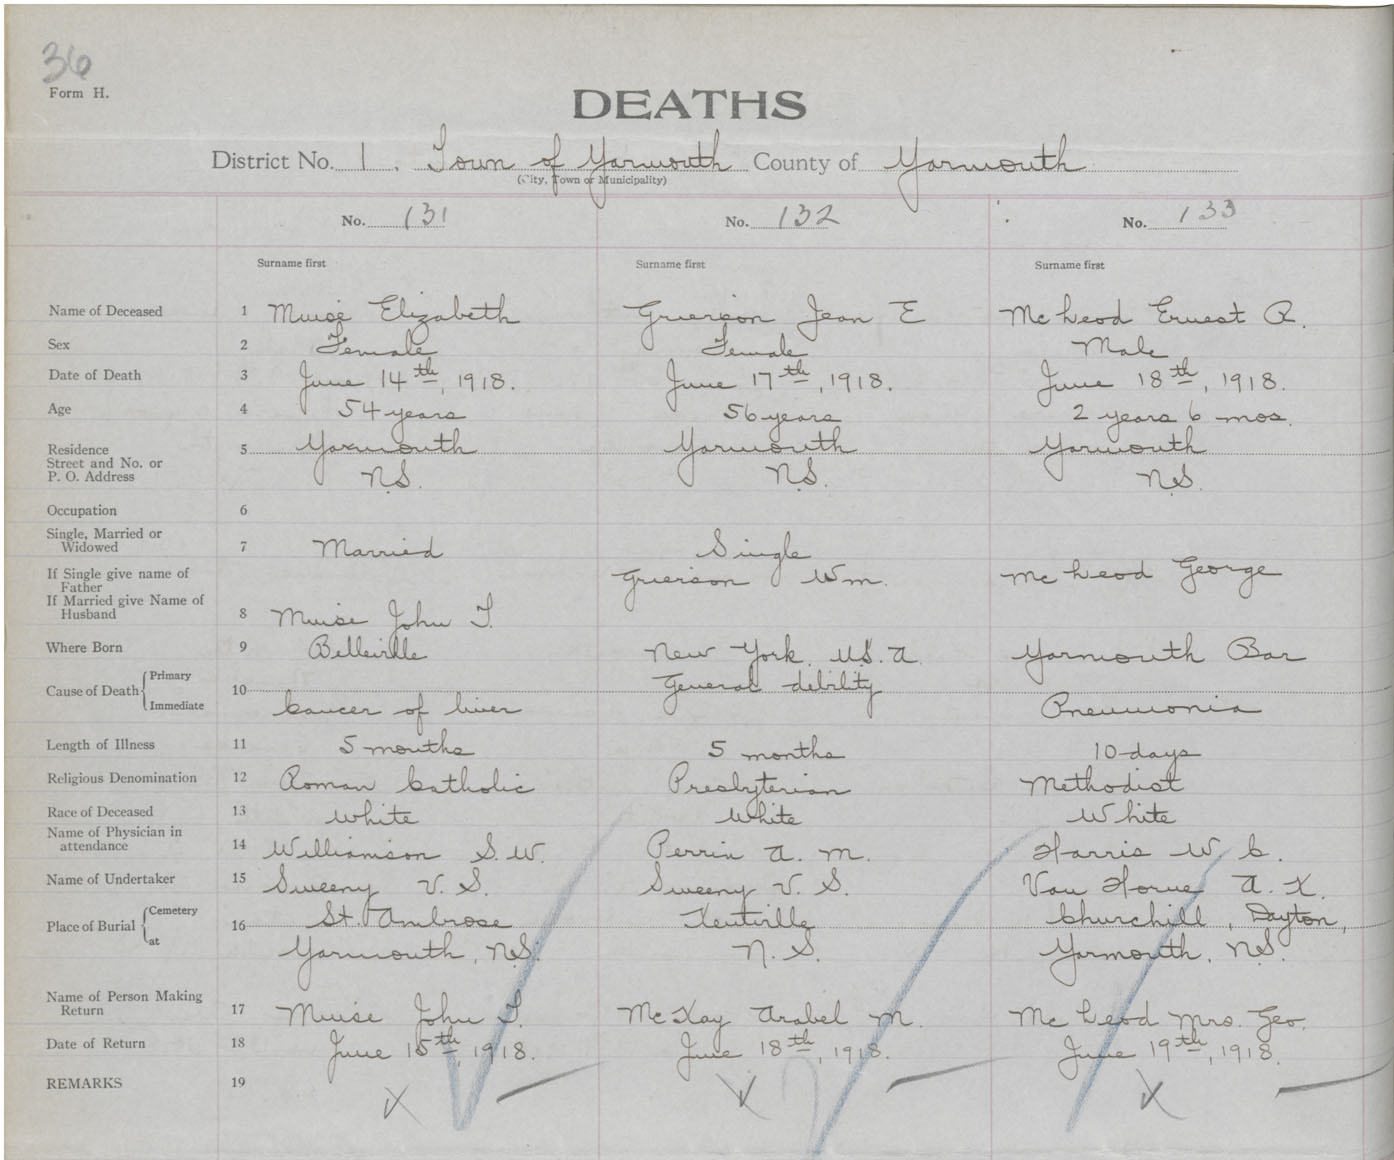 36
Form H.
DEATHS
District No. 1. Town of Yarmouth County of Yarmouth
(City, Town or Municipality)
No. 131 No. 132 No. 133
Surname first Surname first Surname first
Name of Deceased 1 Muise Elizabeth Grierson Jean E McLeod Ernest R.
Sex 2 Female Female Male
Date of Death 3 June 14th, 1918. June 17th, 1918. June 18th, 1918.
Age 4 54 years 56 years 2 years 6 mos.
Residence 5 Yarmouth Yarmouth Yarmouth
Street and No. or
P. O. Address N.S. N.S. N.S.
Occupation 6
Single, Married or
Widowed 7 Married Single
If Single give name of
Father Grierson Wm. McLeod George
If Married give Name of
Husband 8 Muise John T.
Where Born 9 Belleville New York. U.S.A. Yarmouth Bar
Cause of Death Primary 10 General debility
Immediate Cancer of liver Pneumonia
Length of Illness 11 5 months 5 months 10 days
Religious Denomination 12 Roman Catholic Presbyterian Methodist
Race of Deceased 13 White White White
Name of Physician in
attendance 14 Williamson S. W. Perrin A. M. Harris W C.
Name of Undertaker 15 Sweeny V. S. Sweeny V. S. Van Horne A. K.
Place of Burial Cemetery 16 St. Ambrose Kentville Churchill, Dayton,
at Yarmouth, N.S. N.S. Yarmouth, N.S.
Name of Person Making
Return 17 Muise John T. McKay Arabel M. McLeod Mrs. Geo.
Date of Return 18 June 15th, 1918. June 18th, 1918. June 19th, 1918.
REMARKS 19